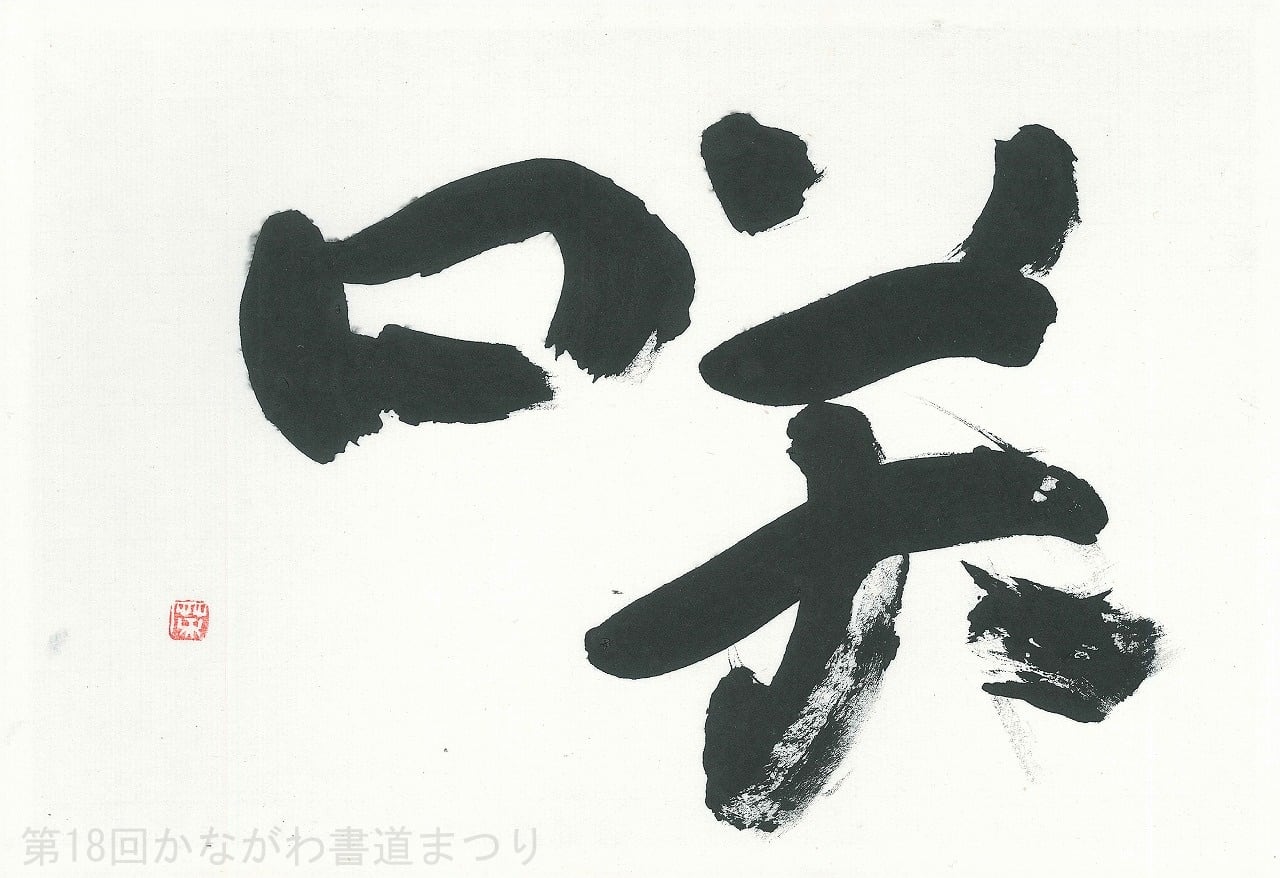 咲
第18回かながわ書道まつり